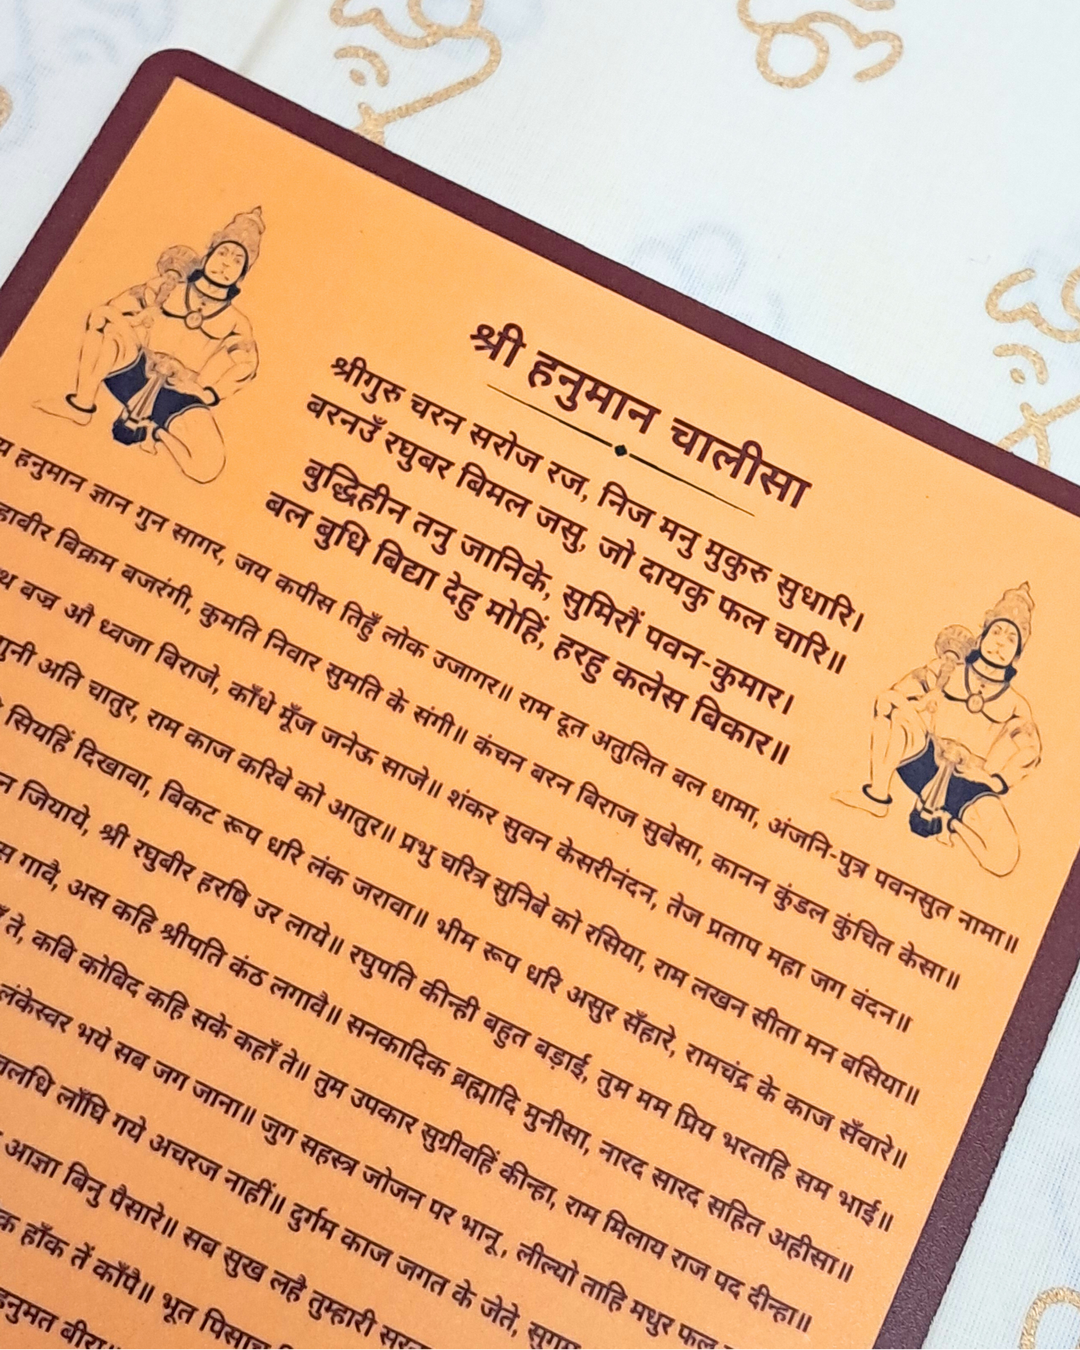 श्री हनुमान चालीसा
श्रीगुरु चरन सरोज रज, निज मनु मुकुरु सुधारि।
बरनउँ रघुबर बिमल जसु, जो दायकु फल चारि॥
बुद्धिहीन तनु जानिके, सुमिरौं पवन-कुमार।
बल बुधि बिद्या देहु मोहिं, हरहु कलेस बिकार॥
हनुमान ज्ञान गुन सागर, जय कपीस तिहुँ लोक उजागर॥ राम दूत अतुलित बल धामा, अंजनि-पुत्र पवनसुत नामा॥
बिक्रम बजरंगी, कुमति निवार सुमति के संगी॥ कंचन बरन बिराज सुबेसा, कानन कुंडल कुंचित केसा॥
बज्र औ ध्वजा बिराजे, काँधे मूँज जनेऊ साजे॥ शंकर सुवन केसरीनंदन, तेज प्रताप महा जग वंदन॥
गुनी अति चातुर, राम काज करिबे को आतुर॥ प्रभु चरित्र सुनिबे को रसिया, राम लखन सीता मन बसिया॥
सियहिं दिखावा, बिकट रूप धरि लंक जरावा॥ भीम रूप धरि असुर सँहारे, रामचंद्र के काज सँवारे॥
जियाये, श्री रघुबीर हरषि उर लाये॥ रघुपति कीन्ही बहुत बड़ाई, तुम मम प्रिय भरतहि सम भाई॥
गावै, अस कहि श्रीपति कंठ लगावै॥ सनकादिक ब्रह्मादि मुनीसा, नारद सारद सहित अहीसा॥
ते, कबि कोबिद कहि सके कहाँ ते॥ तुम उपकार सुग्रीवहिं कीन्हा, राम मिलाय राज पद दीन्हा॥
लंकेस्वर भये सब जग जाना॥ जुग सहस्त्र जोजन पर भानू, लील्यो ताहि मधुर फल
लाँघि गये अचरज नाहीं॥ दुर्गम काज जगत के जेते, सुगम
आज्ञा बिनु पैसारे॥ सब सुख लहै तुम्हारी
हाँक तें काँपै॥ भूत पिसाच
हनुमत बीरा॥